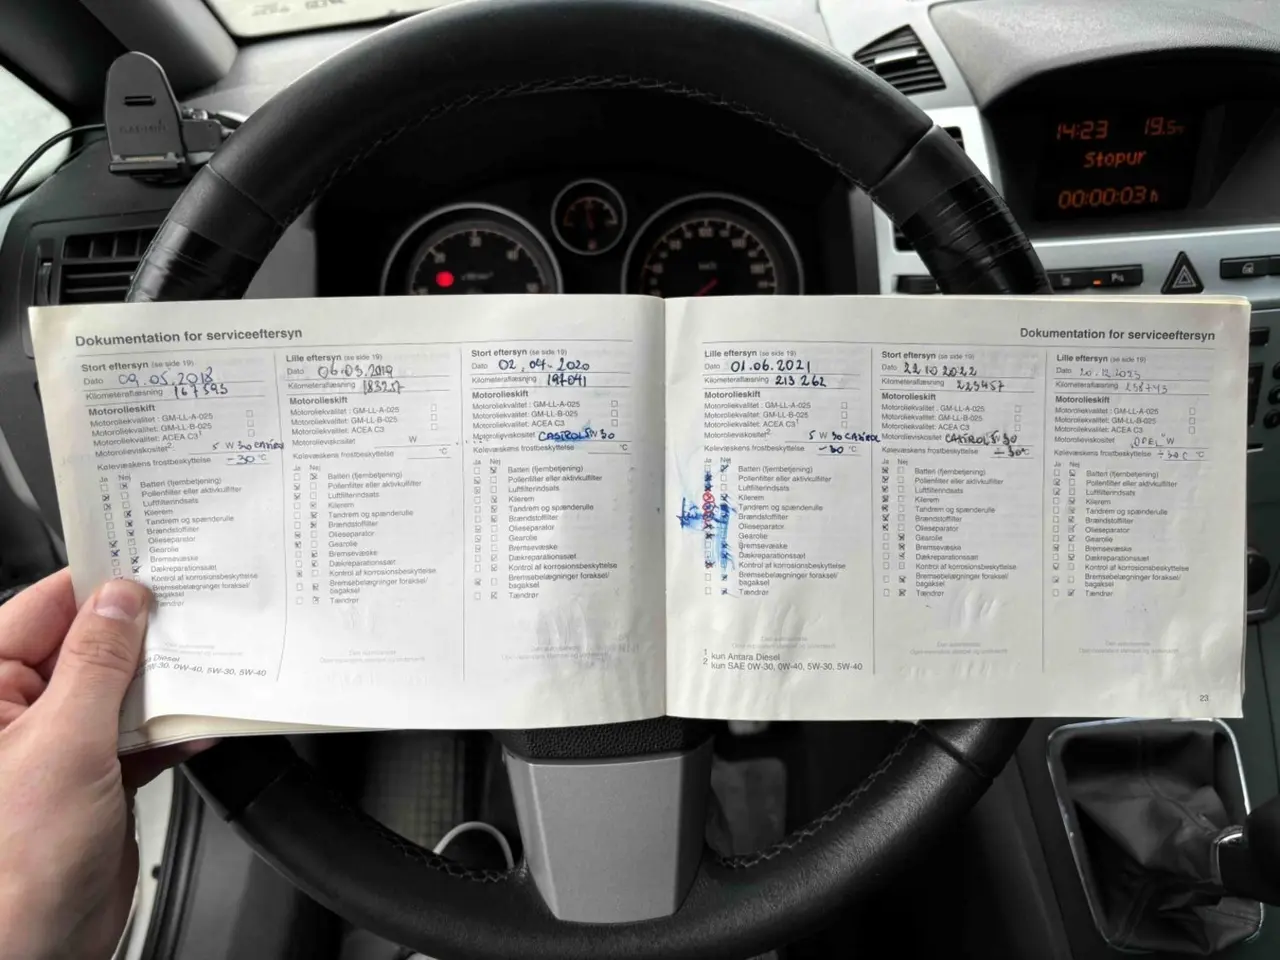 14:23 19.5°C
Stopur
00:00:03 h
Dokumentation for serviceeftersyn
Stort eftersyn (se side 19)
Dato 09.05.2018
Kilometeraflæsning 167595
Motorolieskift
Motoroliekvalitet : GM-LL-A-025
Motoroliekvalitet: GM-LL-B-025
Motoroliekvalitet: ACEA C3¹
Motorolieviskositet² 5 W 30 CASTROL
Kølevæskens frostbeskyttelse -30 °C
Ja Nej
Batteri (fjernbetjening)
Pollenfilter eller aktivkulfilter
Luftfilterindsats
Kilerem
Tandrem og spænderulle
Brændstoffilter
Olieseparator
Gearolie
Bremsevæske
Dækreparationssæt
Kontrol af korrosionsbeskyttelse
Bremsebelægninger foraksel/
bagaksel
Tændrør
Diesel
0W-30, 0W-40, 5W-30, 5W-40
Lille eftersyn (se side 19)
Dato 06.03.2019
Kilometeraflæsning 183217
Motorolieskift
Motoroliekvalitet : GM-LL-A-025
Motoroliekvalitet: GM-LL-B-025
Motoroliekvalitet: ACEA C3¹
Motorolieviskositet W
Kølevæskens frostbeskyttelse °C
Ja Nej
Batteri (fjernbetjening)
Pollenfilter eller aktivkulfilter
Luftfilterindsats
Kilerem
Tandrem og spænderulle
Brændstoffilter
Olieseparator
Gearolie
Bremsevæske
Dækreparationssæt
Kontrol af korrosionsbeskyttelse
Bremsebelægninger foraksel/
bagaksel
Tændrør
Stort eftersyn (se side 19)
Dato 02.04.2020
Kilometeraflæsning 197041
Motorolieskift
Motoroliekvalitet: GM-LL-A-025
Motoroliekvalitet: GM-LL-B-025
Motoroliekvalitet: ACEA C3¹
Motorolieviskositet CASTROL 5W 30
Kølevæskens frostbeskyttelse °C
Ja Nej
Batteri (fjernbetjening)
Pollenfilter eller aktivkulfilter
Luftfilterindsats
Kilerem
Tandrem og spænderulle
Brændstoffilter
Olieseparator
Gearolie
Bremsevæske
Dækreparationssæt
Kontrol af korrosionsbeskyttelse
Bremsebelægninger foraksel/
bagaksel
Tændrør
Dokumentation for serviceeftersyn
Lille eftersyn (se side 19)
Dato 01.06.2021
Kilometeraflæsning 213 262
Motorolieskift
Motoroliekvalitet: GM-LL-A-025
Motoroliekvalitet: GM-LL-B-025
Motoroliekvalitet: ACEA C3¹
Motorolieviskositet² 5 W 30 CASTROL
Kølevæskens frostbeskyttelse -30 °C
Ja Nej
Batteri (fjernbetjening)
Pollenfilter eller aktivkulfilter
Luftfilterindsats
Kilerem
Tandrem og spænderulle
Brændstoffilter
Olieseparator
Gearolie
Bremsevæske
Dækreparationssæt
Kontrol af korrosionsbeskyttelse
Bremsebelægninger foraksel/
bagaksel
Tændrør
1 kun Antara Diesel
2 kun SAE 0W-30, 0W-40, 5W-30, 5W-40
Stort eftersyn (se side 19)
Dato 22.10.2022
Kilometeraflæsning 225457
Motorolieskift
Motoroliekvalitet: GM-LL-A-025
Motoroliekvalitet: GM-LL-B-025
Motoroliekvalitet: ACEA C3¹
Motorolieviskositet CASTROL 5W 30
Kølevæskens frostbeskyttelse ÷ 30°C
Ja Nej
Batteri (fjernbetjening)
Pollenfilter eller aktivkulfilter
Luftfilterindsats
Kilerem
Tandrem og spænderulle
Brændstoffilter
Olieseparator
Gearolie
Bremsevæske
Dækreparationssæt
Kontrol af korrosionsbeskyttelse
Bremsebelægninger foraksel/
bagaksel
Tændrør
Lille eftersyn (se side 19)
Dato 20.12.2023
Kilometeraflæsning 238743
Motorolieskift
Motoroliekvalitet: GM-LL-A-025
Motoroliekvalitet: GM-LL-B-025
Motoroliekvalitet: ACEA C3¹
Motorolieviskositet OPEL W
Kølevæskens frostbeskyttelse ÷30C °C
Ja Nej
Batteri (fjernbetjening)
Pollenfilter eller aktivkulfilter
Luftfilterindsats
Kilerem
Tandrem og spænderulle
Brændstoffilter
Olieseparator
Gearolie
Bremsevæske
Dækreparationssæt
Kontrol af korrosionsbeskyttelse
Bremsebelægninger foraksel/
bagaksel
Tændrør
23